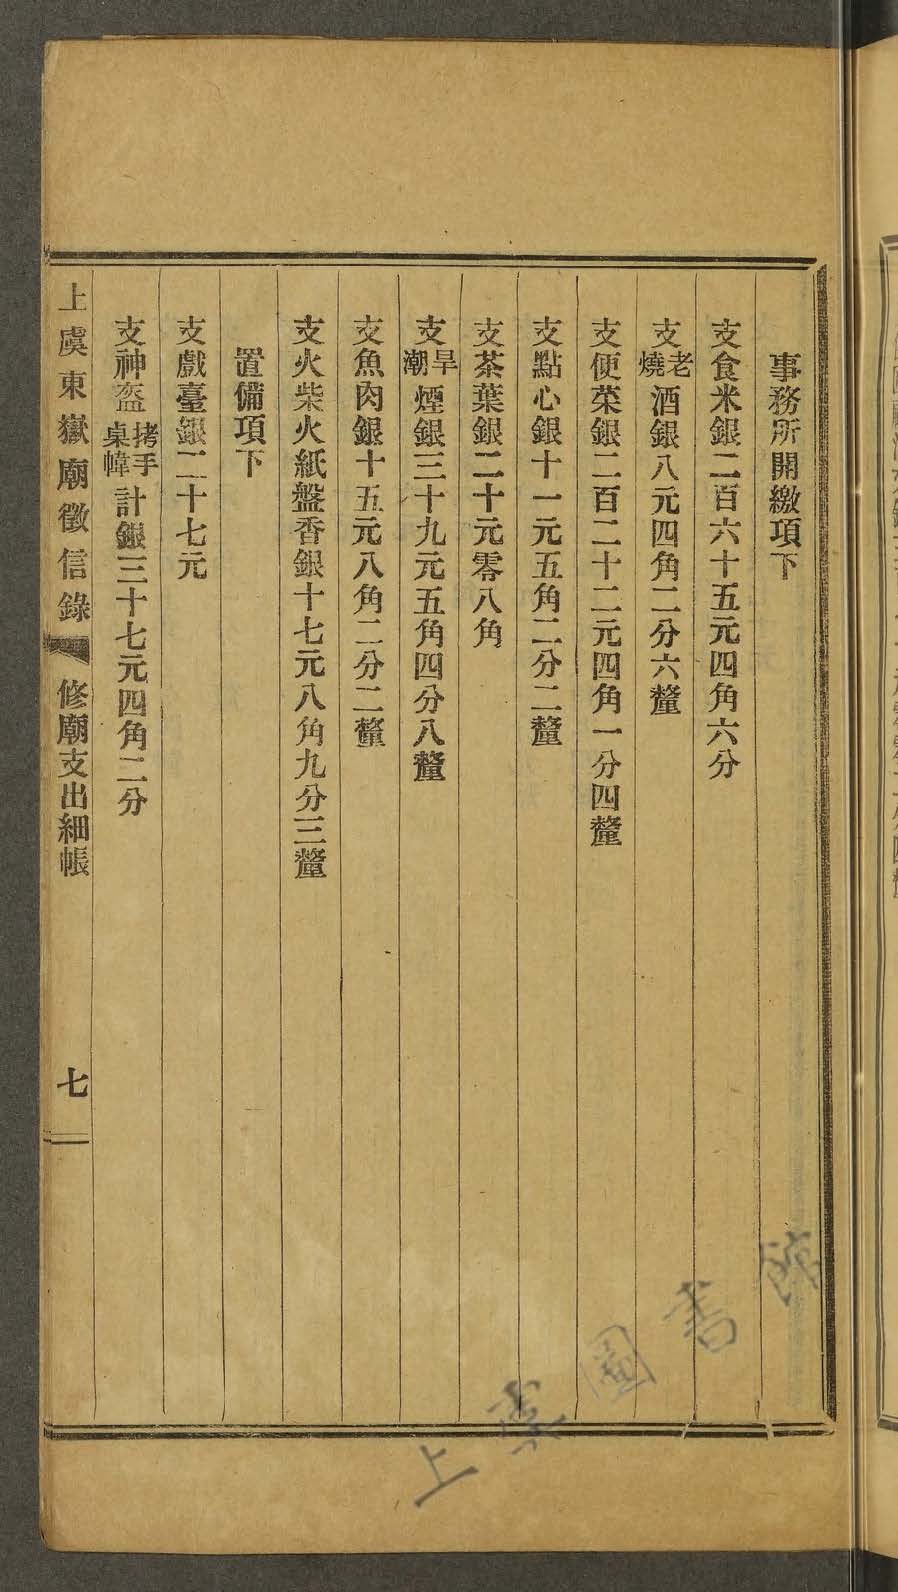 事務所開繳項下
支食米銀二百六十五元四角六分
支老燒酒銀八元四角二分六釐
支便菜銀二百二十二元四角一分四釐
支點心銀十一元五角二分二釐
支茶葉銀二十元零八角
支旱潮煙銀三十九元五角四分八釐
支魚肉銀十五元八角二分二釐
支火柴火紙盤香銀十七元八角九分三釐
置備項下
支戲臺銀二十七元
支神盔拷手桌幃計銀三十七元四角二分
上虞東嶽廟徵信錄 修廟支出細帳 七
上虞圖書館